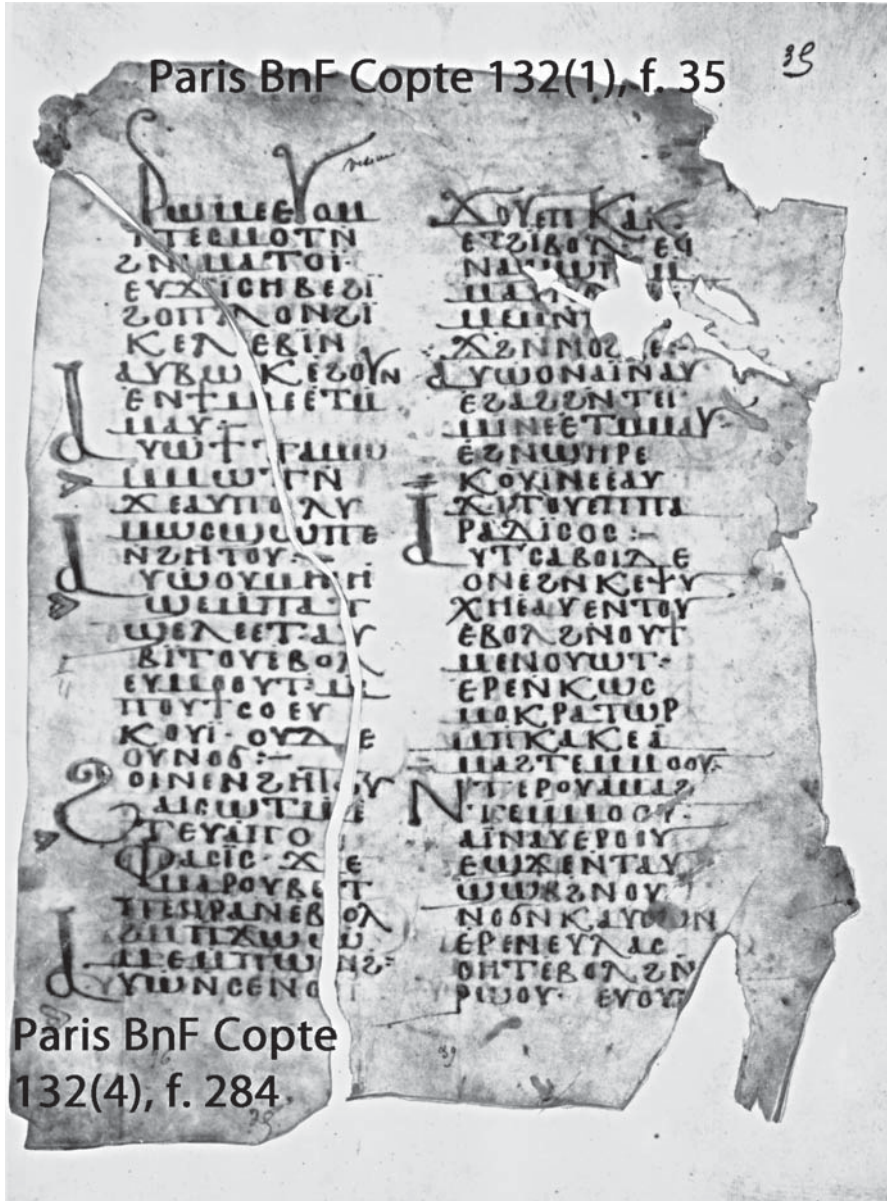 Paris BnF Copte 132(1), f. 35
39
ⲣⲱⲙⲉⲉⲩⲟⲙ
ⲛⲧⲉⲥⲙⲟⲧⲛ
ϩⲛⲙⲙⲁⲧⲟⲓ·
ⲉⲩϫⲓⲥⲏⲃⲉϩⲓ
ϩⲟⲡⲗⲟⲛϩⲓ
ⲕⲉⲗⲉⲃⲓⲛ
ⲁⲩⲃⲱⲕⲉϩⲟⲩⲛ
ⲉⲛϯⲙⲉⲉⲧⲙ
ⲙⲁⲩ·
ⲁⲩⲱϯⲧⲁⲙⲟ
ⲙⲙⲱⲧⲛ
ϫⲉⲁⲩⲡⲟⲗⲩ
ⲙⲱⲥϣⲱⲡⲉ
ⲛϩⲏⲧⲟⲩ:–
ⲁⲩⲱⲟⲩⲙⲏⲏ
ϣⲉⲙⲙⲁⲧ
ϣⲉⲗⲉⲉⲧ·ⲁⲩ
ϥⲓⲧⲟⲩⲉⲃⲟⲗ
ⲉⲩⲙⲟⲟⲩⲧ·ⲙ
ⲡⲟⲩϯⲥⲟⲉⲩ
ⲕⲟⲩⲓ·ⲟⲩⲇⲉ
ⲟⲩⲛⲟϭ:–
ϩⲟⲓⲛⲉⲛϩⲏⲧⲟⲩ
ⲁⲓⲥⲱⲧⲙⲉ
ⲧⲉⲩⲁⲡⲟ
ⲫⲁⲥⲓⲥ·ϫⲉ
ⲙⲁⲣⲟⲩϥⲉⲧ
ⲡⲉⲩⲣⲁⲛⲉⲃⲟⲗ
ϩⲙⲡϫⲱⲱⲙ
ⲙⲉⲙⲡⲱⲛϩ:
ⲁⲩⲱⲛⲥⲉⲛⲟ
ϫⲟⲩⲉⲡⲕⲁⲕ
ⲉⲧϩⲓⲃⲟⲗ· ⲉϥ
ⲙⲉⲙⲛⲧ
ϫϩⲛⲛⲟϩⲉ:–
ⲁⲩⲱⲟⲛⲁⲓⲛⲁⲩ
ⲉϩⲁϩϩⲛⲧⲉⲓ
ⲙⲓⲛⲉⲉⲧⲙⲙⲁⲩ
ⲉϩⲛϣⲏⲣⲉ
ⲕⲟⲩⲓⲛⲉⲉⲁⲩ
ϫⲓⲧⲟⲩⲉⲡⲡⲁ
ⲣⲁⲇⲓⲥⲟⲥ:–
ⲁⲩⲧⲥⲁⲃⲟⲓⲇⲉ
ⲟⲛⲉϩⲛⲕⲉⲯⲩ
ⲭⲏⲉⲁⲩⲉⲛⲧⲟⲩ
ⲉⲃⲟⲗϩⲛⲟⲩϯ
ⲙⲉⲛⲟⲩⲱⲧ·
ⲉⲣⲉⲛⲕⲱⲥ
ⲙⲟⲕⲣⲁⲧⲱⲣ
ⲙⲡⲕⲁⲕⲉⲁ
ⲙⲁϩⲧⲉⲙⲙⲟⲟⲩ·
ⲛⲧⲉⲣⲟⲩⲁⲙⲁϩ
ⲧⲉⲙⲙⲟⲟⲩ·
ⲁⲓⲛⲁⲩⲉⲣⲟⲟⲩ
ⲉϣϫⲉⲛⲧⲁⲩ
ϣⲱⲃϩⲛⲟⲩ
ⲛⲟϭⲛⲕⲁⲩⲙⲁⲛ
ⲉⲣⲉⲛⲉⲩⲗⲁⲥ
ⲟⲏⲧⲉⲃⲟⲗϩⲛ
ⲣⲱⲟⲩ· ⲉⲩⲟⲩ
39
Paris BnF Copte
132(4), f. 284